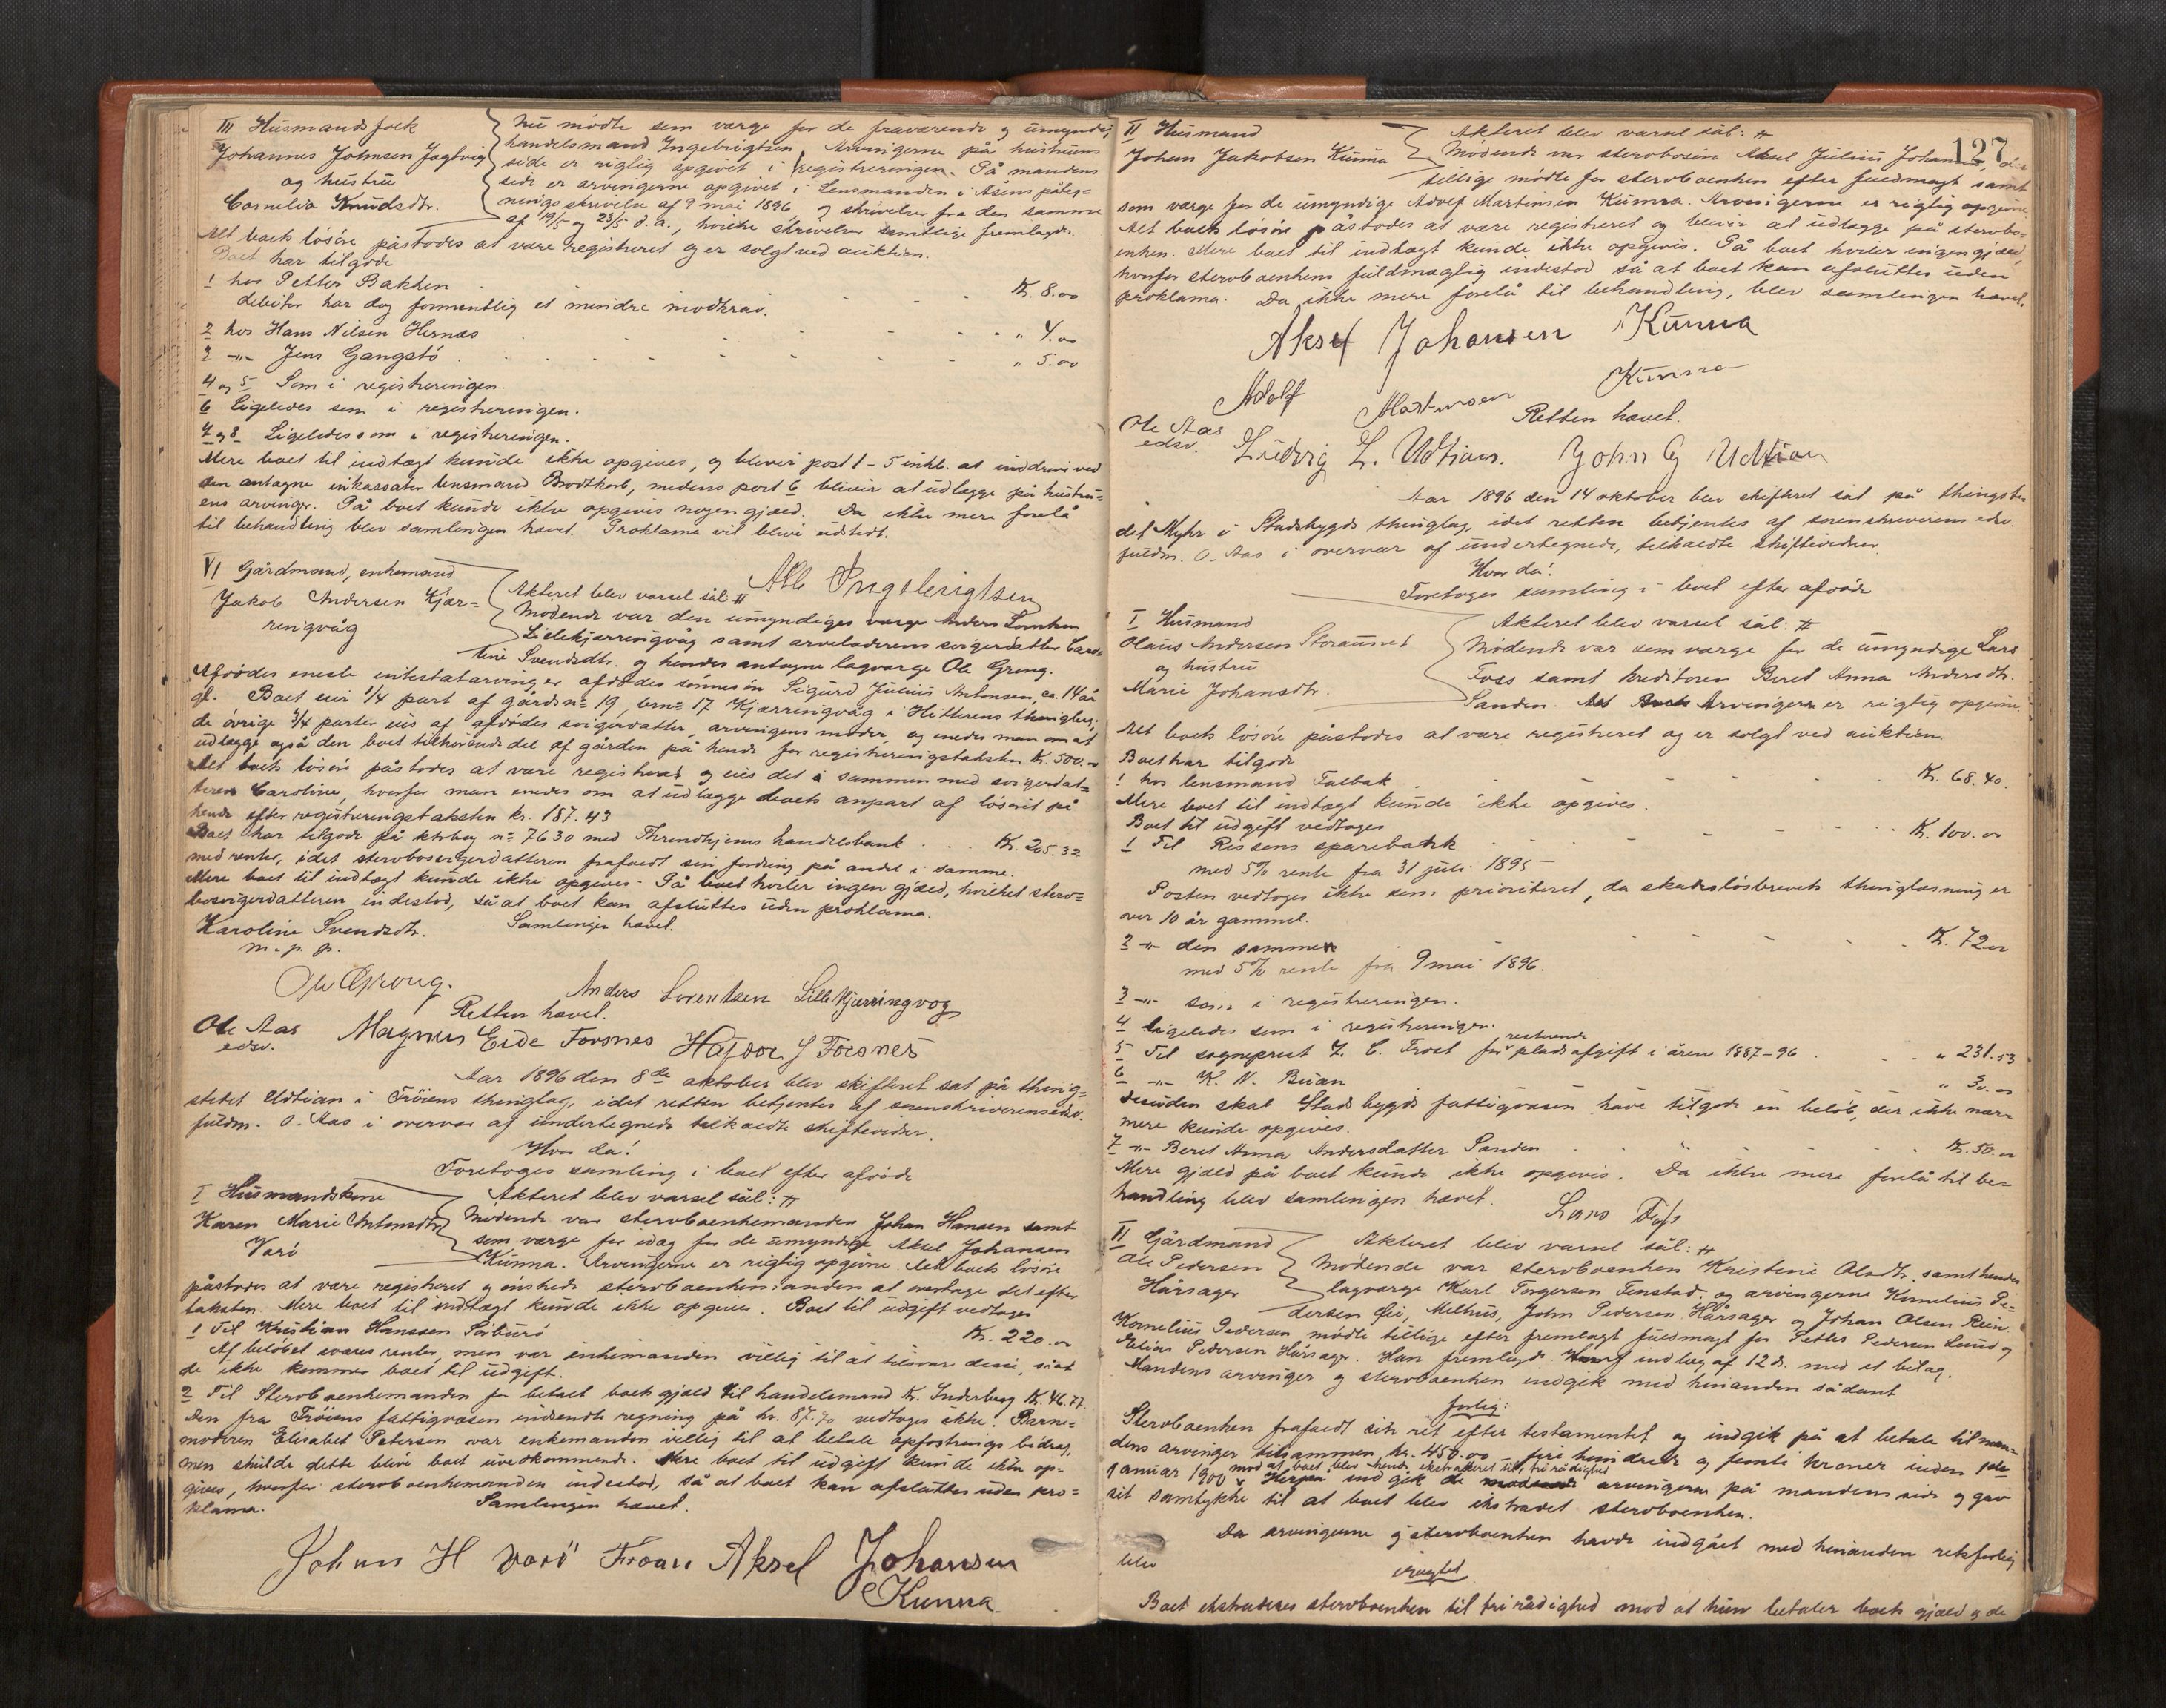 III Husmandsfolk
Johannes Johnsen Jagtvig
og hustru
Cornelia Knudsdtr.
Nu mødte som værge for de fraværende og umyndige,
handelsmand Ingebrigtsen. Arvingerne på hustruens
side er rigtig opgivet i registreringen. På mandens
side er arvingerne opgivet i Lensmanden i Asens påteg=
nings skrivelse af 9 mai 1896 og skrivelser fra den samme
af 19/5 og 23/5 d. a., hvilke skrivelser samtlige fremlagdes.
Alt boets løsøre påstodes at være registreret og er solgt ved auktion.
Boet har tilgode
1 hos Petter Bakken Kr. 8.00
debitor har dog formentlig et mindre modkrav.
2 hos Hans Nilsen Hernæs " 4.00
3 -"- Jens Gangstø " 5.00
4 og 5 Som i registreringen.
6 Ligeledes som i registreringen.
7 og 8 Ligeledes som i registreringen.
Mere boet til indtægt kunde ikke opgives, og bliver post 1-5 inkl. at inddrive ved
den antagne inkassator lensmand Brodtkorb, medens post 6 bliver at udlægge på hustru=
ens arvinger. På boet kunde ikke opgives nogen gjæld. Da ikke mere forelå
til behandling blev samlingen hævet. Proklama vil blive udstedt.
Alb Ingebrigtsen
VI Gårdmand, enkemand
Jakob Andersen Kjær=
ringvåg
Akteret blev varsel sål: #
Mødende var den umyndiges værge Anders Lorentsen
Lillekjærringvåg samt arveladerens svigerdatter Caro=
line Svendsdtr. og hendes antagne lagværge Ole Grong.
Afdødes eneste intestatarving er afdødes sønnesøn Sigurd Julius Antonsen, ca. 14 år
gl. Boet eier 1/4 part af gårdsn= 19, brn= 17 Kjærringvåg i Hitterens thinglag;
de øvrige 3/4 parter eies af afdødes svigerdatter, arvingens moder, og enedes man om at
udlægge også den boet tilhørende del af gården på hende for registreringstaksten Kr. 500.00
Alt boets løsøre påstodes at være registreret og eies det i sammen med svigerdat=
teren Caroline, hvorfor man enedes om at udlægge boets anpart af løsøret på
hende efter registreringstaksten kr. 187.43
Boet har tilgode på ktrbog n= 7630 med Throndhjems handelsbank Kr. 205.32
med renter, idet stervbosvigerdatteren frafaldt sin fordring på andel i samme.
Mere boet til indtægt kunde ikke opgives. På boet hviler ingen gjæld, hvilket sterv=
bosvigerdatteren indestod, så at boet kan afsluttes uden proklama.
Karoline Svendsdtr. Samlingen hævet.
m. p. p.
Ole Grong. Anders Lorentsen Lillekjerringvog
Retten hævet.
Ole Aas
edsv.
Magnus Eide Forsnes Hajdor J Forsnes
Aar 1896 den 8de oktober blev skifteret sat på thing=
stedet Udtian i Frøiens thinglag, idet retten betjentes af sorenskriverens edsv.
fuldm. O. Aas i overvær af undertegnede tilkaldte skiftevidner.
Hvor da!
Foretoges samling i boet efter afdøde
I Husmandskone
Karen Marie Antonsdtr
Varø
Akteret blev varsel sål: #
Mødende var stervboenkemanden Johan Hansen samt
som værge for idag for de umyndige Aksel Johansen
Kunna. Arvingerne er rigtig opgivne. Alt boets løsøre
påstodes at være registreret og ønskede stervboenkemanden at overtage det efter
taksten. Mere boet til indtægt kunde ikke opgives. Boet til udgift vedtages
1 Til Kristian Hanssen Sørburø Kr. 220.00
Af beløbet svares renter, men var enkemanden villig til at tilsvare disse, så at
de ikke kommer boet til udgift.
2 Til Stervboenkemanden for betalt boets gjæld til handelsmand Kr. Inderberg Kr. 46.77.
Den fra Frøiens fattigvæsen indsendte regning på kr. 87.70 vedtoges ikke. Barne=
moderen Elisabet Petersen var enkemanden villig til at betale opfostringsbidrag,
men skulde dette blive boet uvedkommende. Mere boet til udgift kunde ikke op=
gives, hvorfor stervboenkemanden indestod, så at boet kan afsluttes uden pro=
klama. Samlingen hævet.
Johan H Varø Froan Aksel Johansen
Kunna
127
II Husmand
Johan Jakobsen Kunna
Akteret blev varsel sål: #
Mødende var stervbosøn Aksel Julius Johansen,
tillige mødte for stervboenken efter fuldmagt samt
som værge for de umyndige Adolf Martinsen Kunna. Arvingerne er rigtig opgivne
Alt boets løsøre påstodes at være registreret og bliver at udlægge på stervbo=
enken. Mere boet til indtægt kunde ikke opgives. På boet hviler ingen gjæld,
hvorfor stervboenkens fuldmægtig indestod så at boet kan afsluttes uden
proklama. Da ikke mere forelå til behandling, blev samlingen hævet.
Aksel Johansen Kunna
Adolf Martinsen Kunna
Retten hævet.
Ole Aas
edsv.
Ludvig L. Udtian. John G Udtian
Aar 1896 den 14 oktober blev skifteret sat på thingste=
det Myhr i Stadsbygds thinglag, idet retten betjentes af sorenskriverens edsv.
fuldm. O. Aas i overvær af undertegnede, tilkaldte skiftevidner
Hvor da!
Foretoges samling i boet efter afdøde
I Husmand
Olaus Andersen Storaunet
og hustru
Marie Johansdtr.
Akteret blev varsel sål: #
Mødende var som værge for de umyndige Lars
Foss samt kreditoren Beret Anna Andersdtr.
Sanden. Arvingerne er rigtig opgivne.
Alt boets løsøre påstodes at være registreret og er solgt ved auktion.
Boet har tilgode
1 hos lensmand Falbak Kr. 68.40.
Mere boet til indtægt kunde ikke opgives.
Boet til udgift vedtoges
1 Til Rissens sparebank Kr. 100.00
med 5% rente fra 31 juli 1895
Posten vedtoges ikke som prioriteret, da skadesløsbrevets thinglæsning er
over 10 år gammel.
2 -"- den samme Kr. 72.00
med 5% rente fra 9 mai 1896.
3 -"- som i registreringen.
4 ligeledes som i registreringen.
5 Til sogneprest Z. C. Trost for restrende pladsafgift i årene 1887-96 " 231.53
6 -"- K. N. Buan " 30.00
Desuden skal Stadsbygds fattigvæsen have tilgode en beløb, der ikke nær=
mere kunde opgives.
7 -"- Beret Anna Andersdatter Sanden Kr. 50.00
Mere gjæld på boet kunde ikke opgives. Da ikke mere forelå til be=
handling blev samlingen hævet.
Lars Fo/s
II Gårdmand
Ole Pedersen
Hårsager
Akteret blev varsel sål: #
Mødende var stervboenken Kristine Olsdtr. samt hendes
lagværge Karl Torgersen Fenstad, og arvingerne Kornelius Pe=
dersen Øie, Melhus, John Pedersen Hårsager og Johan Olsen Rein.
Kornelius Pedersen mødte tillige efter fremlagt fuldmagt for Petter Pedersen Lund og
Elias Pedersen Hårsager. Han fremlagde indlæg af 12 ds. med et bilag.
Mandens arvinger og stervboenken indgik med hinanden sådant
forlig:
Stervboenken frafaldt sin ret efter testamentet og indgik på at betale til man=
dens arvinger tilsammen kr. 450.00 – firehundrede og femti kroner inden 1ste
januar 1900 mod at boet blev hende ekstraderet til fri rådighed. Herpå indgik de arvingerne på mandens side og gav
sit samtykke til at boet blev ekstradert stervboenken.
Da arvingerne og stervboenken havde indgået med hinanden retsforlig
blev
eragtet
Boet ekstraderes stervboenken til fri rådighed mod at hun betaler boets gjæld og de